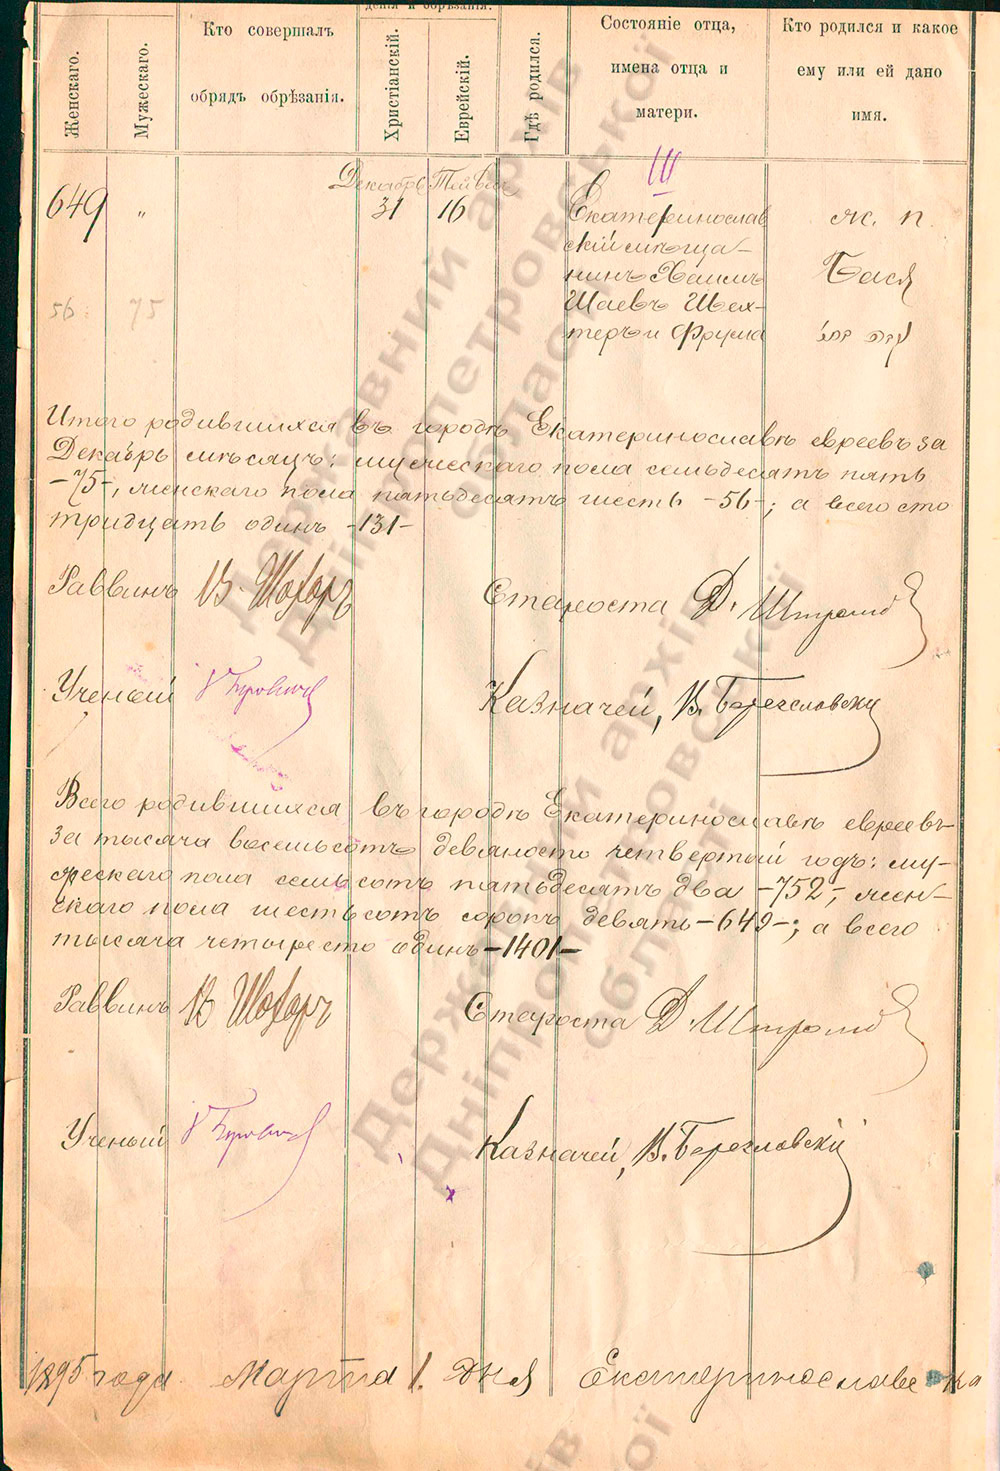 дения и обрѣзанія.
Женскаго.
Мужескаго.
Кто совершалъ
обрядъ обрѣзанія.
Христіанскій.
Еврейскій.
Гдѣ родился.
Состояніе отца,
имена отца и
матери.
Кто родился и какое
ему или ей дано
имя.
III
Декабрь Тейвесъ
649 " 31 16
Екатеринослав
скій мѣща-
нинъ Хаимъ
Шаевъ Шех-
теръ и Фрума
ж. п.
Бася
56 75
Итого родившихся въ городѣ Екатеринославѣ евреевъ за
Декабрь мѣсяцъ: мужескаго пола семьдесятъ пять
-75-, женскаго пола пятьдесятъ шесть -56-; а всего сто
тридцать одинъ -131-
Раввинъ В. Шохоръ Староста Д.
Ученый Казначей, В.
Всего родившихся въ городѣ Екатеринославѣ евреевъ
за тысяча восемьсотъ девяносто четвертый годъ: му-
жескаго пола семьсотъ пятьдесятъ два -752-, жен-
скаго пола шестьсотъ сорокъ девять -649-; а всего
тысяча четыреста одинъ -1401-
Раввинъ В Шохоръ Староста Д.
Ученый Казначей, В.
1895 года Марта 1. дня Екатеринослав
Державний архів
Дніпропетровської
області
Державний архів
Дніпропетровської
області